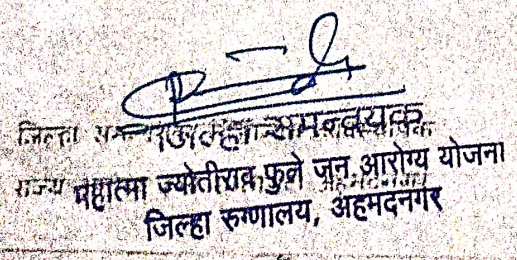 जिल्हा समन्वयक
महात्मा ज्योतीराव फुले जन आरोग्य योजना
जिल्हा रुग्णालय, अहमदनगर